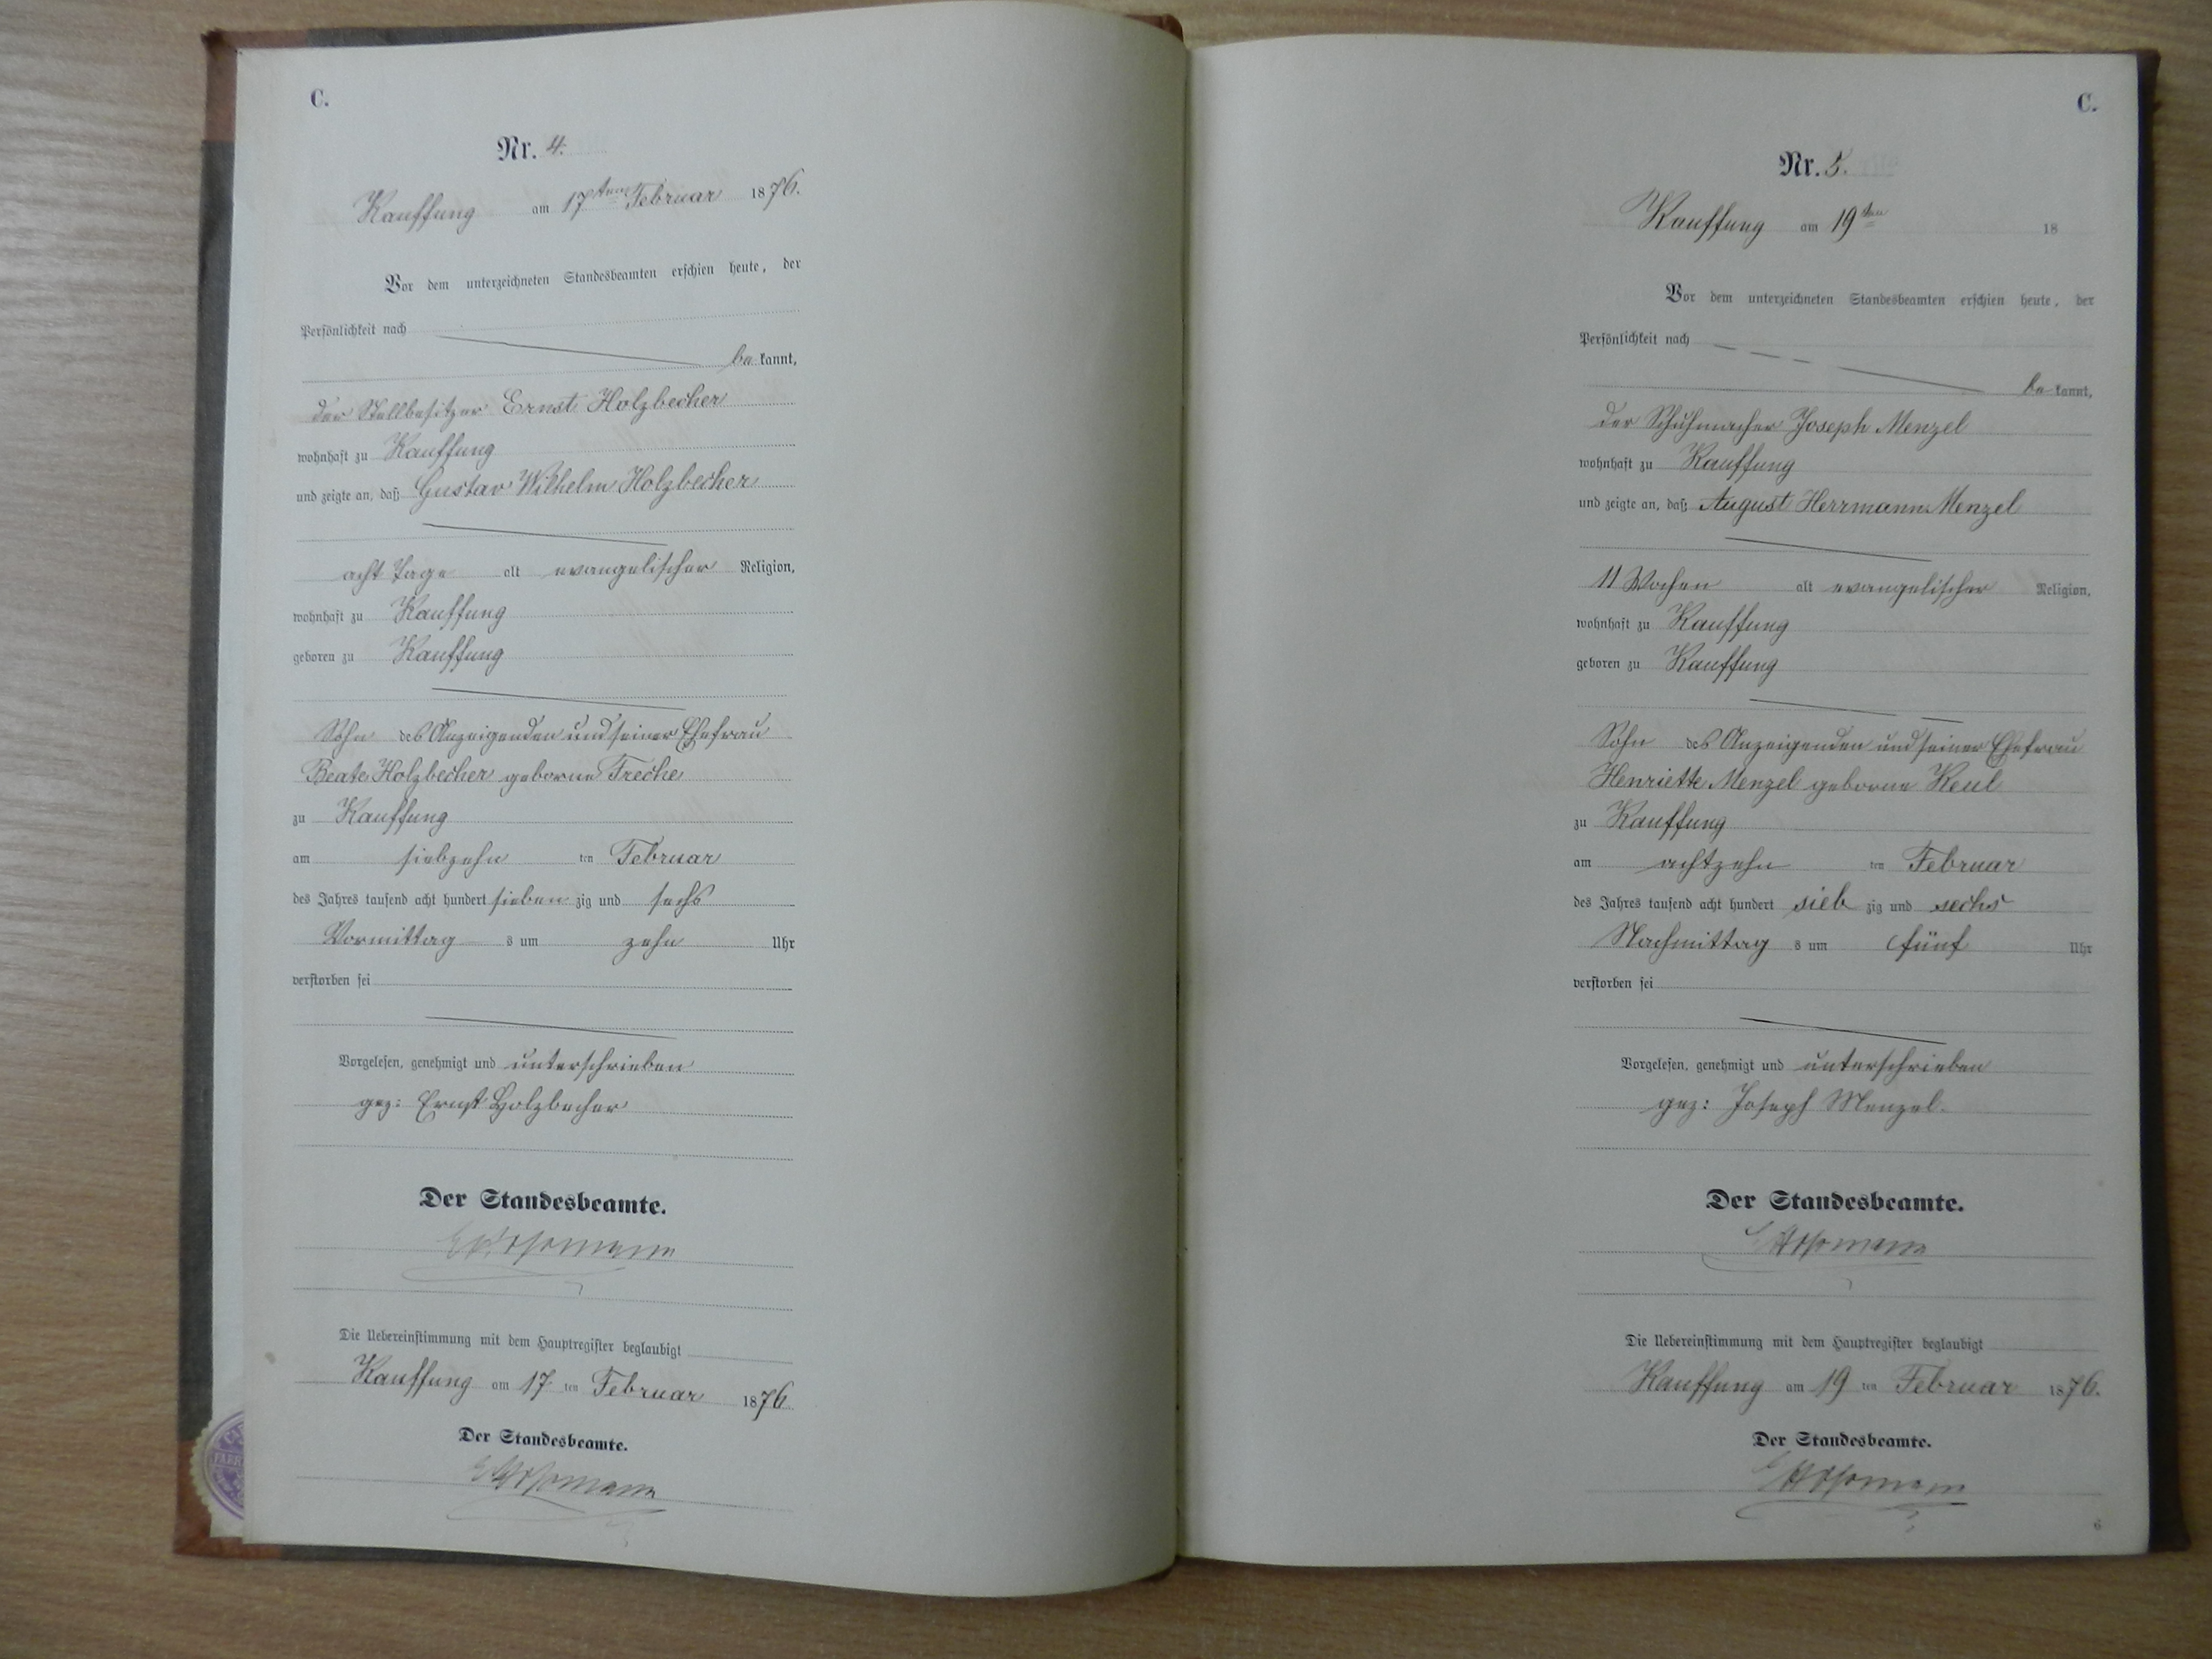 C.
Nr. 4.
Kauffung am 17ten Februar 1876.
Vor dem unterzeichneten Standesbeamten erschien heute, der
Persönlichkeit nach
be kannt,
der Stellbesitzer Ernst Holzbecher
wohnhaft zu Kauffung
und zeigte an, daß Gustav Wilhelm Holzbecher
acht Tage alt evangelischer Religion,
wohnhaft zu Kauffung
geboren zu Kauffung
Sohn des Anzeigenden und seiner Ehefrau
Beate Holzbecher geborne Freche
zu Kauffung
am siebzehn ten Februar
des Jahres tausend acht hundert sieben zig und sechs
Vormittag s um zehn Uhr
verstorben sei
Vorgelesen, genehmigt und unterschrieben
gez: Ernst Holzbecher
Der Standesbeamte.
Die Uebereinstimmung mit dem Hauptregister beglaubigt
Kauffung am 17. ten Februar 1876.
Der Standesbeamte.
C.
Nr. 5.
Kauffung am 19ten 18
Vor dem unterzeichneten Standesbeamten erschien heute, der
Persönlichkeit nach
be kannt,
der Schuhmacher Joseph Menzel
wohnhaft zu Kauffung
und zeigte an, daß August Herrmann Menzel
11 Wochen alt evangelischer Religion,
wohnhaft zu Kauffung
geboren zu Kauffung
Sohn des Anzeigenden und seiner Ehefrau
Henriette Menzel geborne Keul
zu Kauffung
am achtzehn ten Februar
des Jahres tausend acht hundert sieb zig und sechs
Nachmittag s um fünf Uhr
verstorben sei
Vorgelesen, genehmigt und unterschrieben
gez: Joseph Menzel.
Der Standesbeamte.
Die Uebereinstimmung mit dem Hauptregister beglaubigt
Kauffung am 19 ten Februar 1876.
Der Standesbeamte.
6